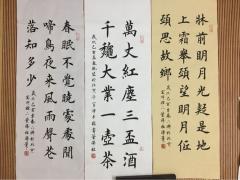 牀前明月光疑是地
上霜舉頭望明月低
頭思故鄉
萬丈紅塵三盃酒
千穐大業一壺茶
春眠不覺曉處處聞
啼鳥夜來風雨聲花
落知多少